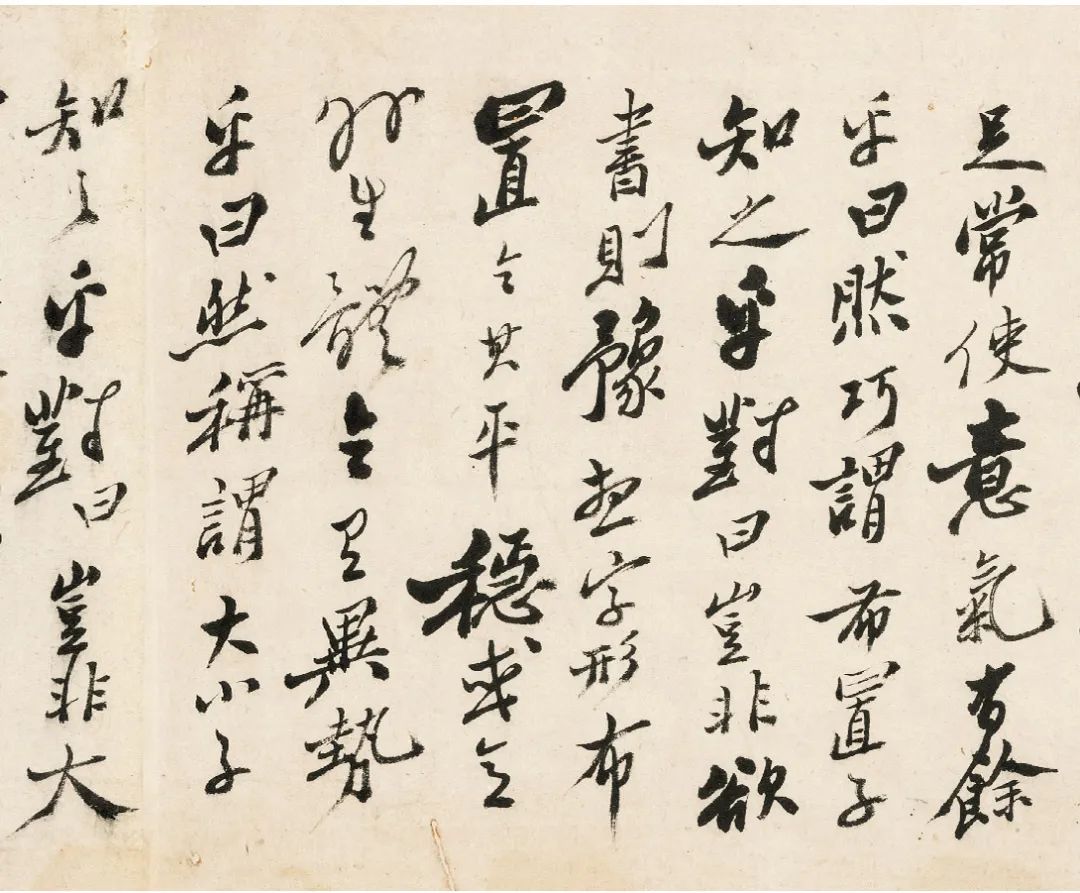 足常使意氣有餘
乎曰然巧謂布置子
知之乎對曰豈非欲
書則豫想字形布
置令其平穩或令
外生體令有異勢
乎曰然稱謂大小子
知之乎對曰豈非大